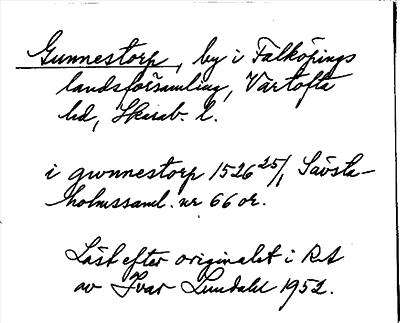 Gunnestorp, by i Falköpings
landsförsamling, Vartofta
hd, Skarab. l.
i gwnnestorp 1526 25/1 Sävsta-
holmssaml. nr 66 or.
Läst efter originalet i RA
av Ivar Lundahl 1952.